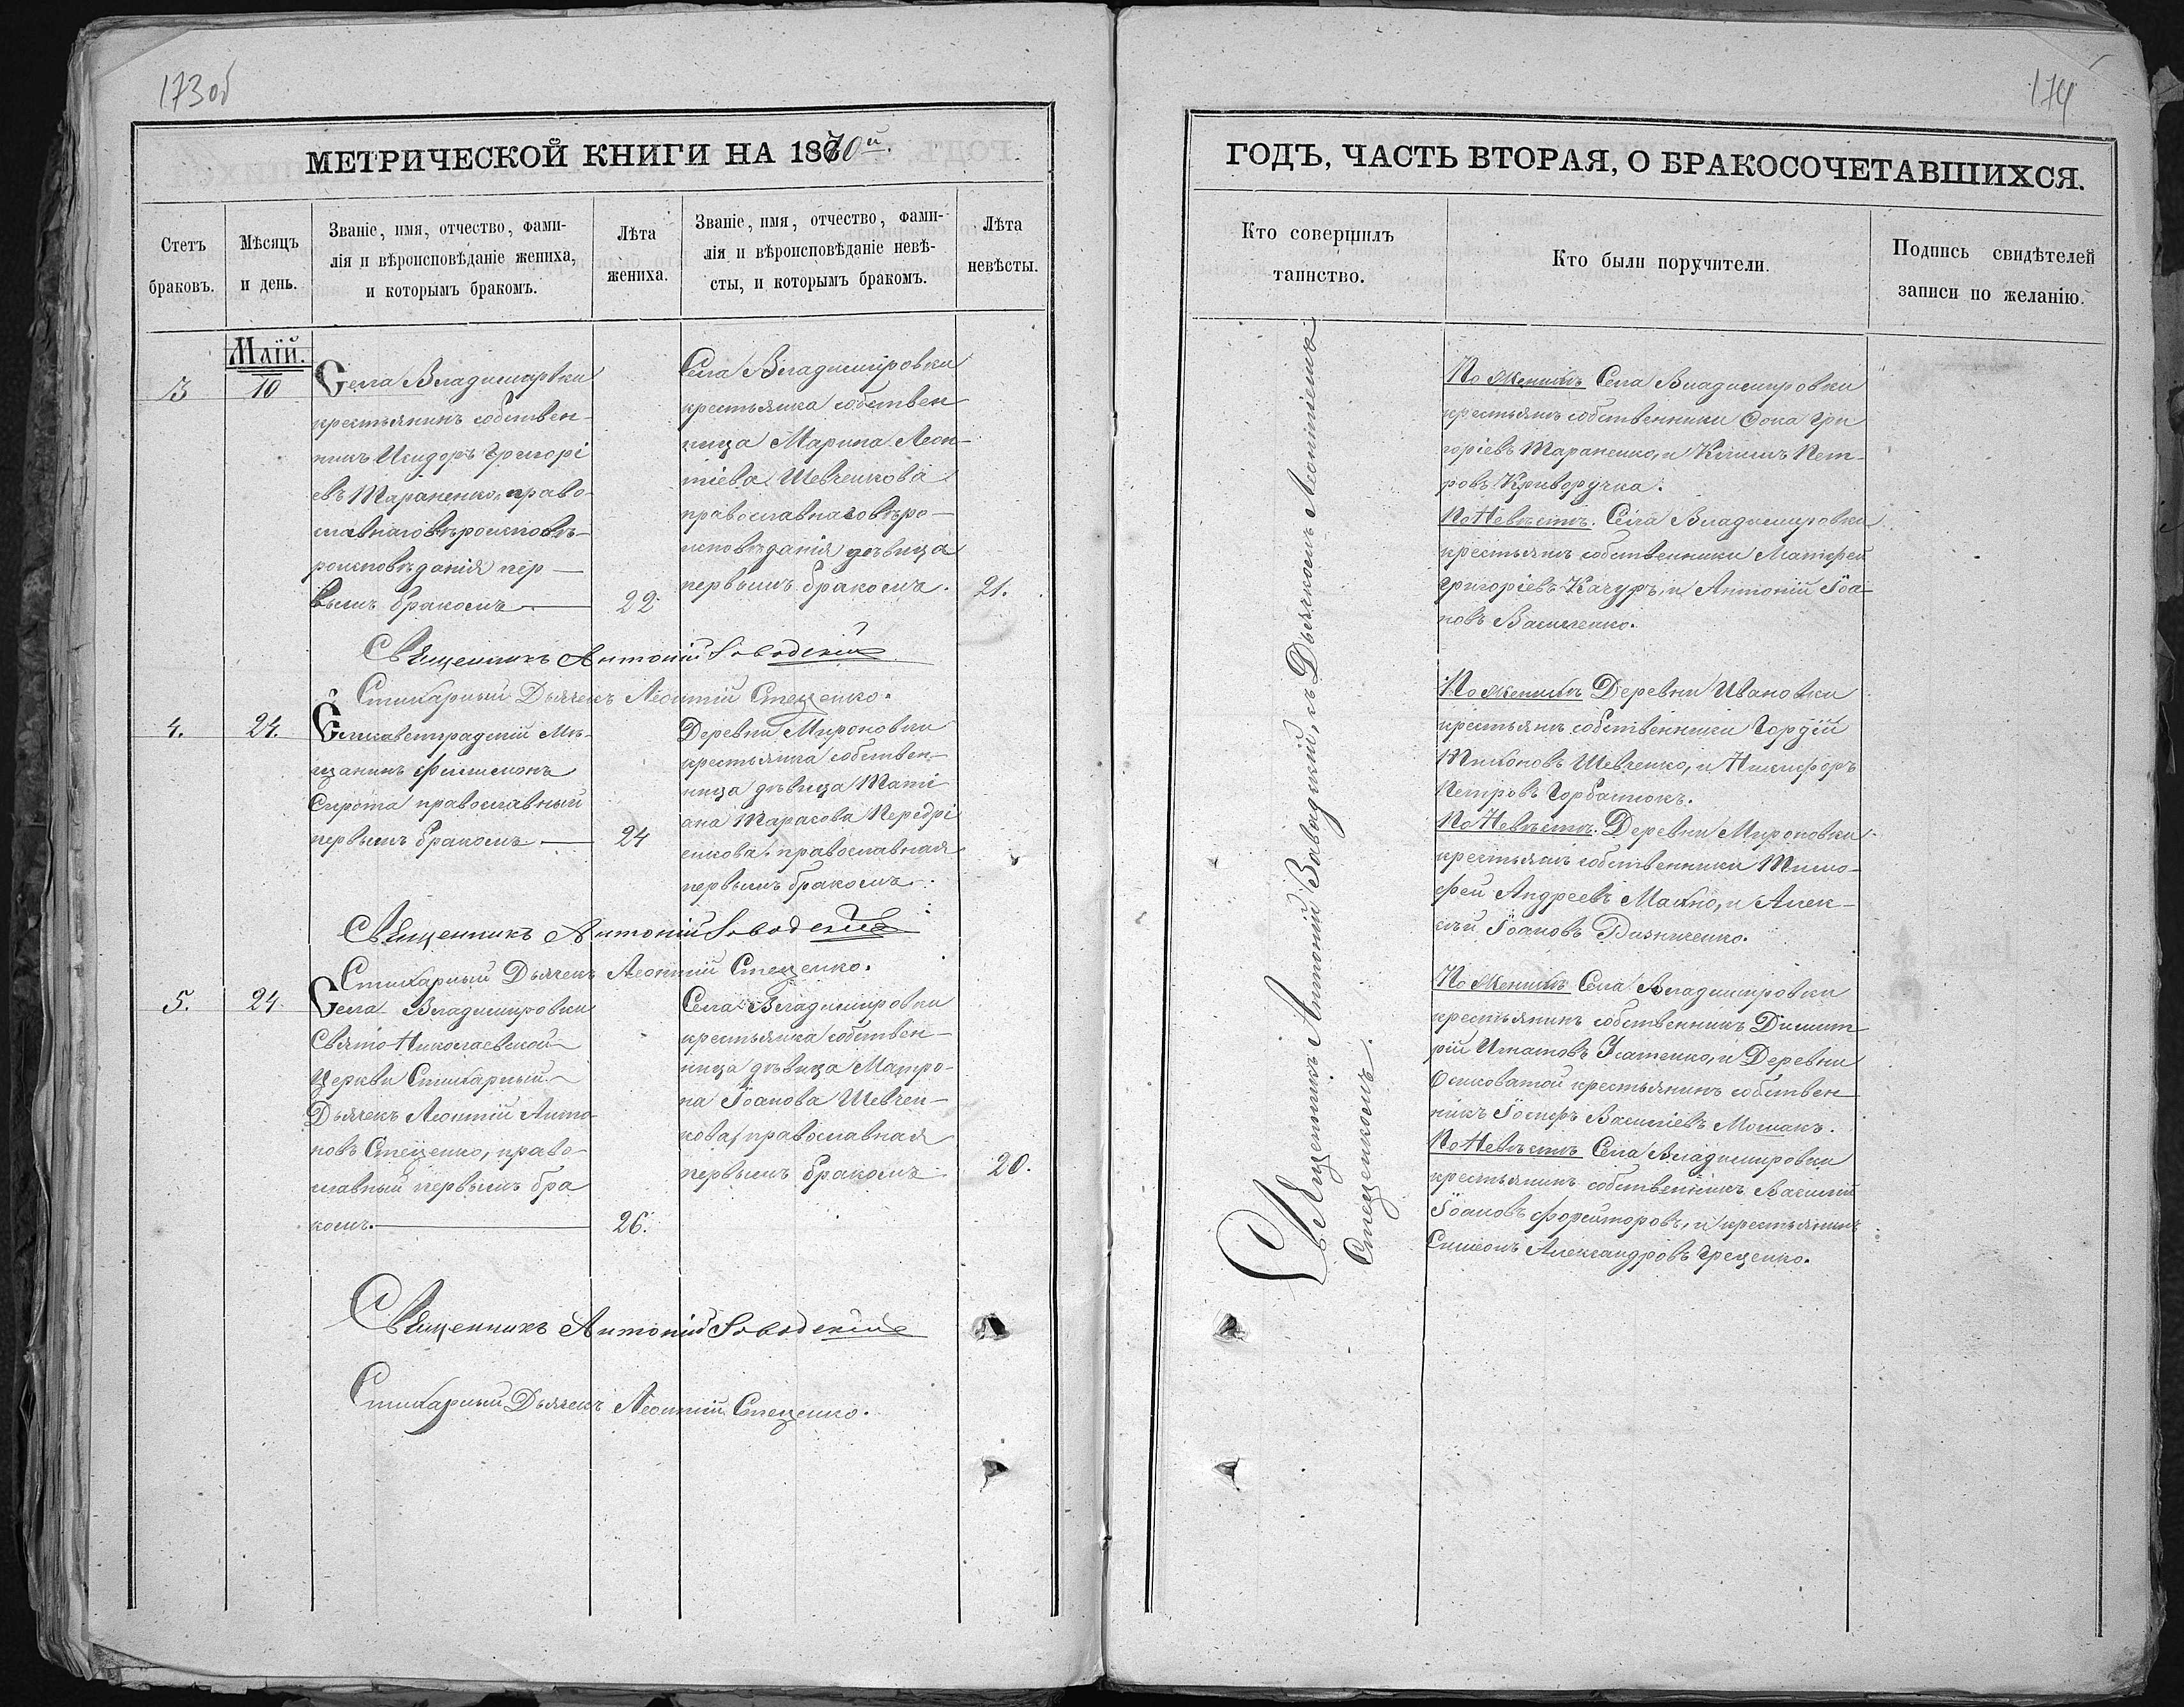 173об
МЕТРИЧЕСКОЙ КНИГИ НА 1870й.
Стетъ
браковъ.
Мѣсяцъ
и день.
Званіе, имя, отчество, фами-
лія и вѣроисповѣданіе жениха,
и которымъ бракомъ.
Лѣта
жениха.
Званіе, имя, отчество, фами-
лія и вѣроисповѣданіе невѣ-
сты, и которымъ бракомъ.
Лѣта
невѣсты.
Маій.
3
10
Села Владимировки
крестьянинъ собствен-
никъ Исидоръ Григорі
евъ Тараненко, право-
славнаго вѣроисповѣ-
роисповѣданія пер-
вымъ бракомъ
22
Села Владимировки
крестьянка собствен
ница Марина Леон-
тіева Шевченкова
православнаго вѣро-
исповѣданія дѣвица
первымъ бракомъ.
21.
Священникъ Антоній Заводскій
Стихарный Дьячекъ Леонтій Стеценко.
4.
24.
Елисаветградскій Мѣ-
щанинъ Филимонъ
Сирота православный
первымъ бракомъ
24
Деревни Мироновки
крестьянка собствен-
ница дѣвица Таті
ана Тарасова Передрі
енкова, православная
первымъ бракомъ.
Священникъ Антоній Заводскій
Стихарный Дьячекъ Леонтій Стеценко.
5.
24.
Села Владимировки
Свято-Николаевской
Церкви Стихарный
Дьячекъ Леонтій Анто-
новъ Стеценко, право-
славный первымъ бра
комъ.
26.
Села Владимировки
крестьянка собствен-
ница дѣвица Матро-
на Іоанова Шевчен-
кова, православная
первымъ бракомъ
20.
Священникъ Антоній Заводскій
Стихарный Дьячекъ Леонтій Стеценко.
174
ГОДЪ, ЧАСТЬ ВТОРАЯ, О БРАКОСОЧЕТАВШИХСЯ.
Кто совершилъ
таинство.
Кто были поручители.
Подпись свидѣтелей
записи по желанію.
Священникъ Антоній Завадскій, съ Дьячкомъ Леонтіемъ
Стеценкомъ.
По Женихѣ Села Владимировки
крестьяне собственники Фока Гри
горіевъ Тараненко, и Климъ Пет-
ровъ Криворучка.
По Невѣстѣ. Села Владимировки
крестьяне собственники Матфей
Григоріевъ Качуръ, и Антоній Іоа-
новъ Василенко.
По Женихѣ Деревни Ивановки
крестьяне собственники Гордѣй
Тихоновъ Шевченко, и Никифоръ
Петровъ Горбатюкъ.
По Невѣстѣ. Деревни Мироновки
крестьяне собственники Тимо-
фей Андреевъ Махно, и Алек-
сѣй Іоановъ
По Женихѣ Села Владимировки
крестьянинъ собственникъ Димит
рій Игнатовъ Усатенко, и Деревни
Осиковатой крестьянинъ собствен
никъ Іосифъ Василіевъ
По Невѣстѣ Села Владимировки
крестьянинъ собственникъ Василій
Іоановъ Форейторовъ, и крестьянинъ
Симеонъ Александровъ Греценко.